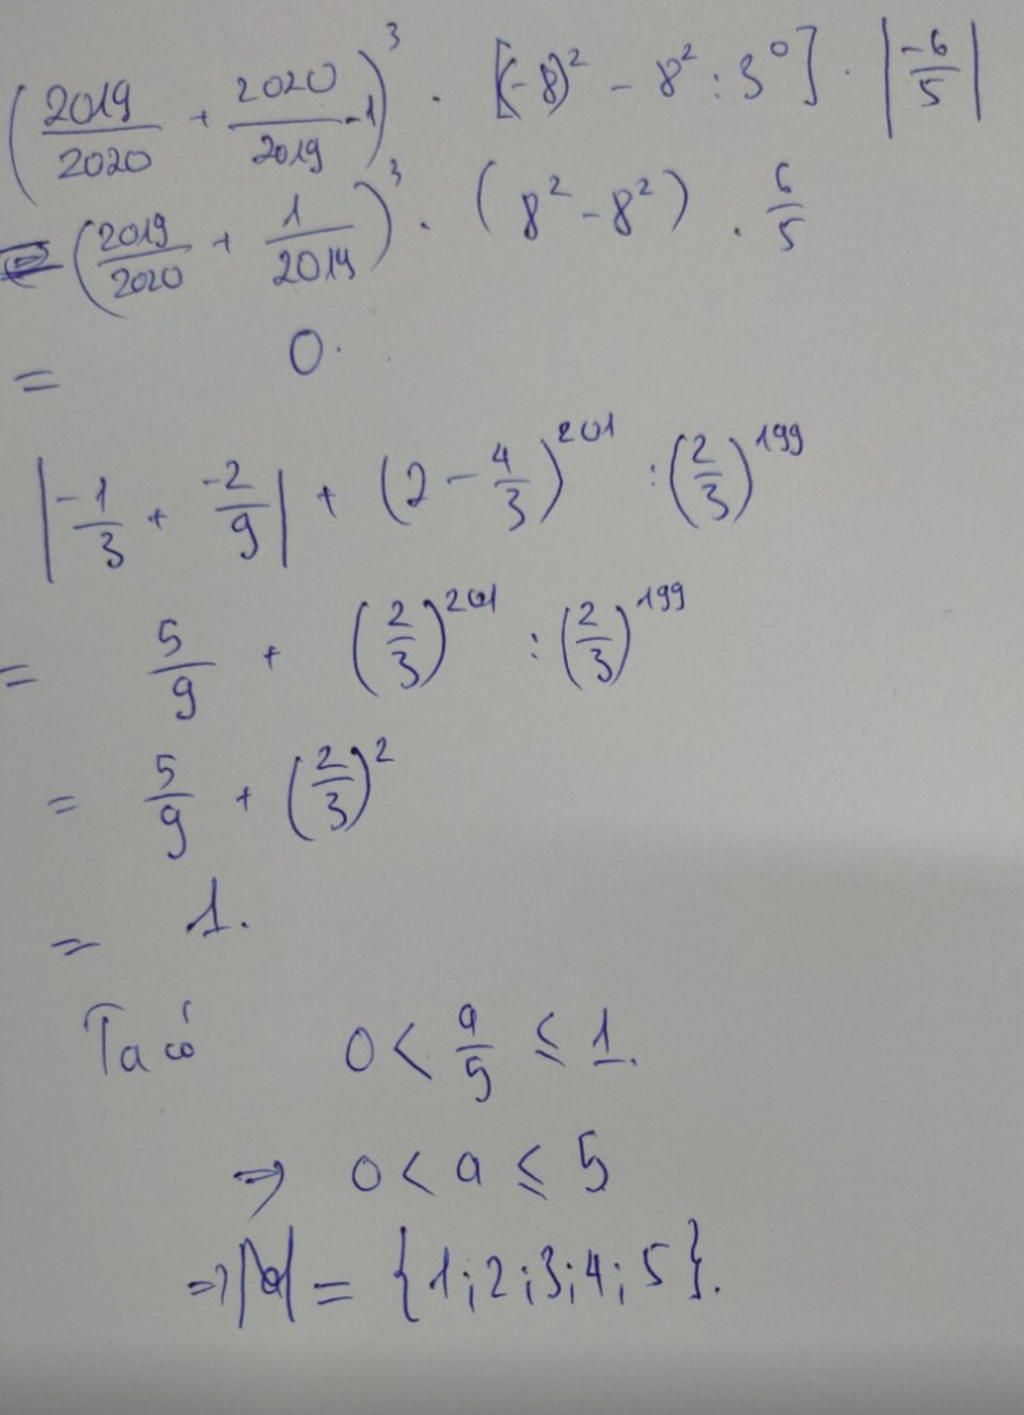 (2019/2020 + 2020/2019 - 1)³ . [(-8)² - 8² : 3⁰] . |-6/5|
= (2019/2020 + 1/2019)³ . (8² - 8²) . 6/5
= 0.
|-1/3 + -2/9| + (2 - 4/3)²⁰¹ : (2/3)¹⁹⁹
= 5/9 + (2/3)²⁰¹ : (2/3)¹⁹⁹
= 5/9 + (2/3)²
= 1.
Ta có 0 < a/5 ≤ 1.
⇒ 0 < a ≤ 5
⇒ = {1; 2; 3; 4; 5}.